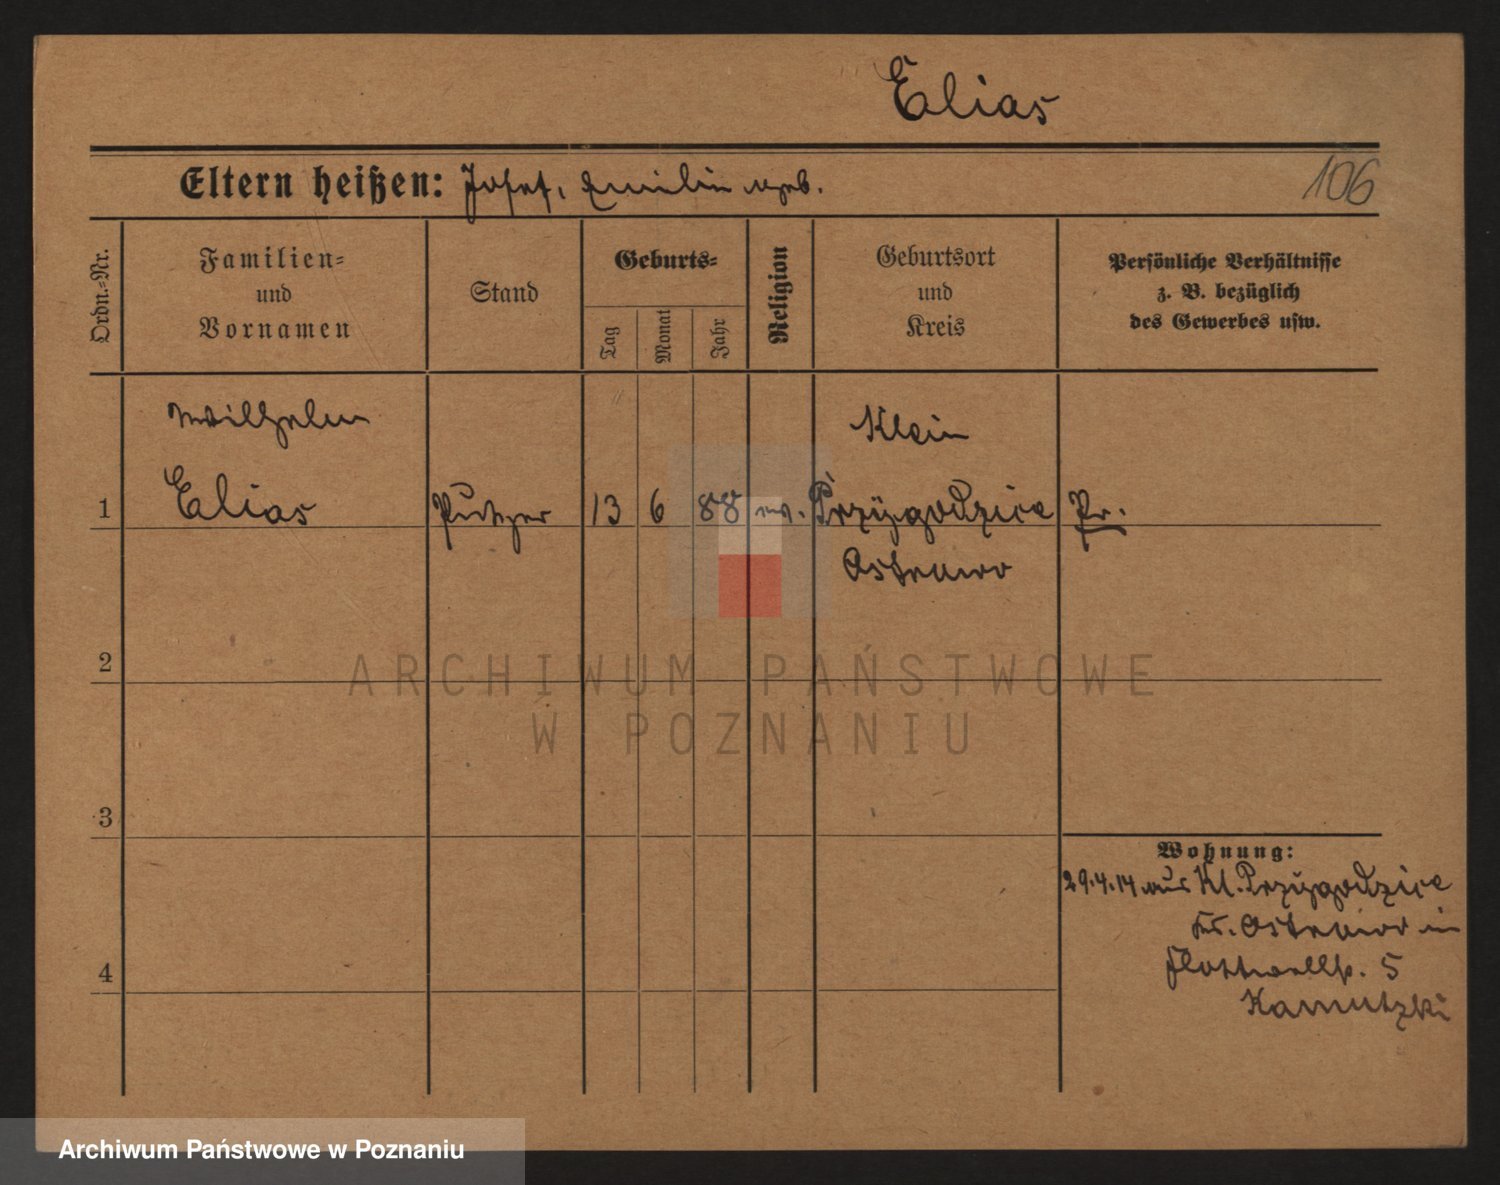 Elias
Eltern heißen: Josef, Emilie geb.
106
Ordn.-Nr.
Familien-
und
Vornamen
Stand
Geburts-
Tag
Monat
Jahr
Religion
Geburtsort
und
Kreis
Persönliche Verhältnisse
z. B. bezüglich
des Gewerbes usw.
Wilhelm
Klein
1 Elias Putzer 13 6 88 ev. Przygodzice Pr.
Ostrowo
2
ARCHIWUM PAŃSTWOWE
W POZNANIU
3
Wohnung:
29.4.14 aus Kl. Przygodzice
Kr. Ostrowo in
Flottwellstr. 5
4
Kamutzki
Archiwum Państwowe w Poznaniu